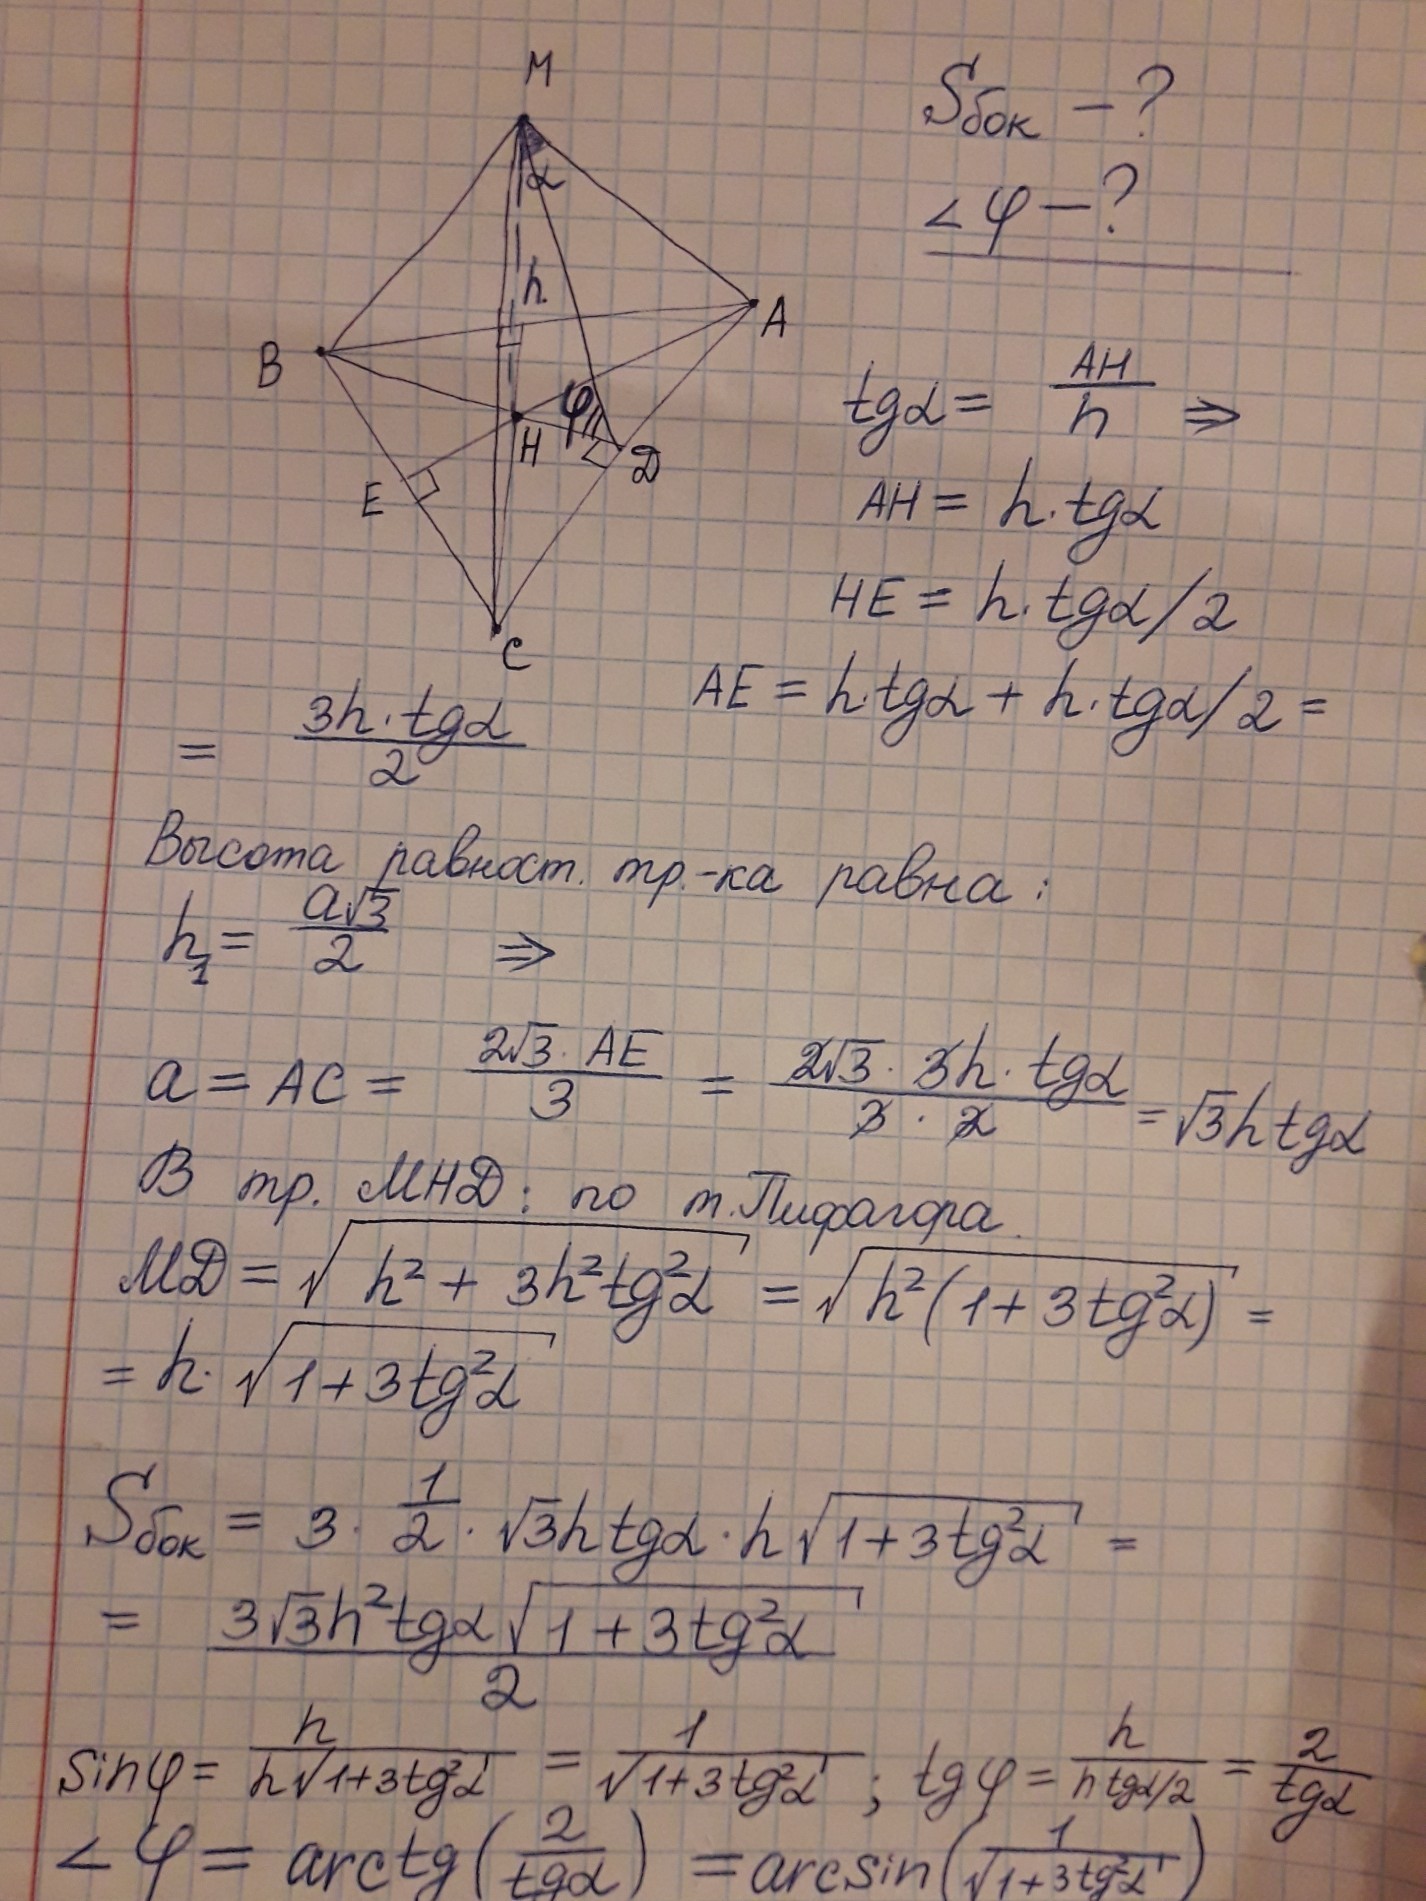 M
α
h
B
A
φ
H
D
E
C
Sбок – ?
∠φ – ?
tgα = AH/h ⇒
AH = h·tgα
HE = h·tgα/2
AE = h·tgα + h·tgα/2 =
= 3h·tgα/2
Высота равност. тр.-ка равна:
h₁ = a√3/2 ⇒
a = AC = 2√3·AE/3 = 2√3·3h·tgα/3·2 = √3htgα
В тр. МНД: по т.Пифагора.
МД = √(h² + 3h²tg²α) = √(h²(1+3tg²α)) =
= h·√(1+3tg²α)
Sбок = 3·1/2·√3htgα·h√(1+3tg²α) =
= 3√3h²tgα√(1+3tg²α)/2
sinφ = h/h√(1+3tg²α) = 1/√(1+3tg²α) ; tgφ = h/htgα/2 = 2/tgα
∠φ = arctg(2/tgα) = arcsin(1/√(1+3tg²α))